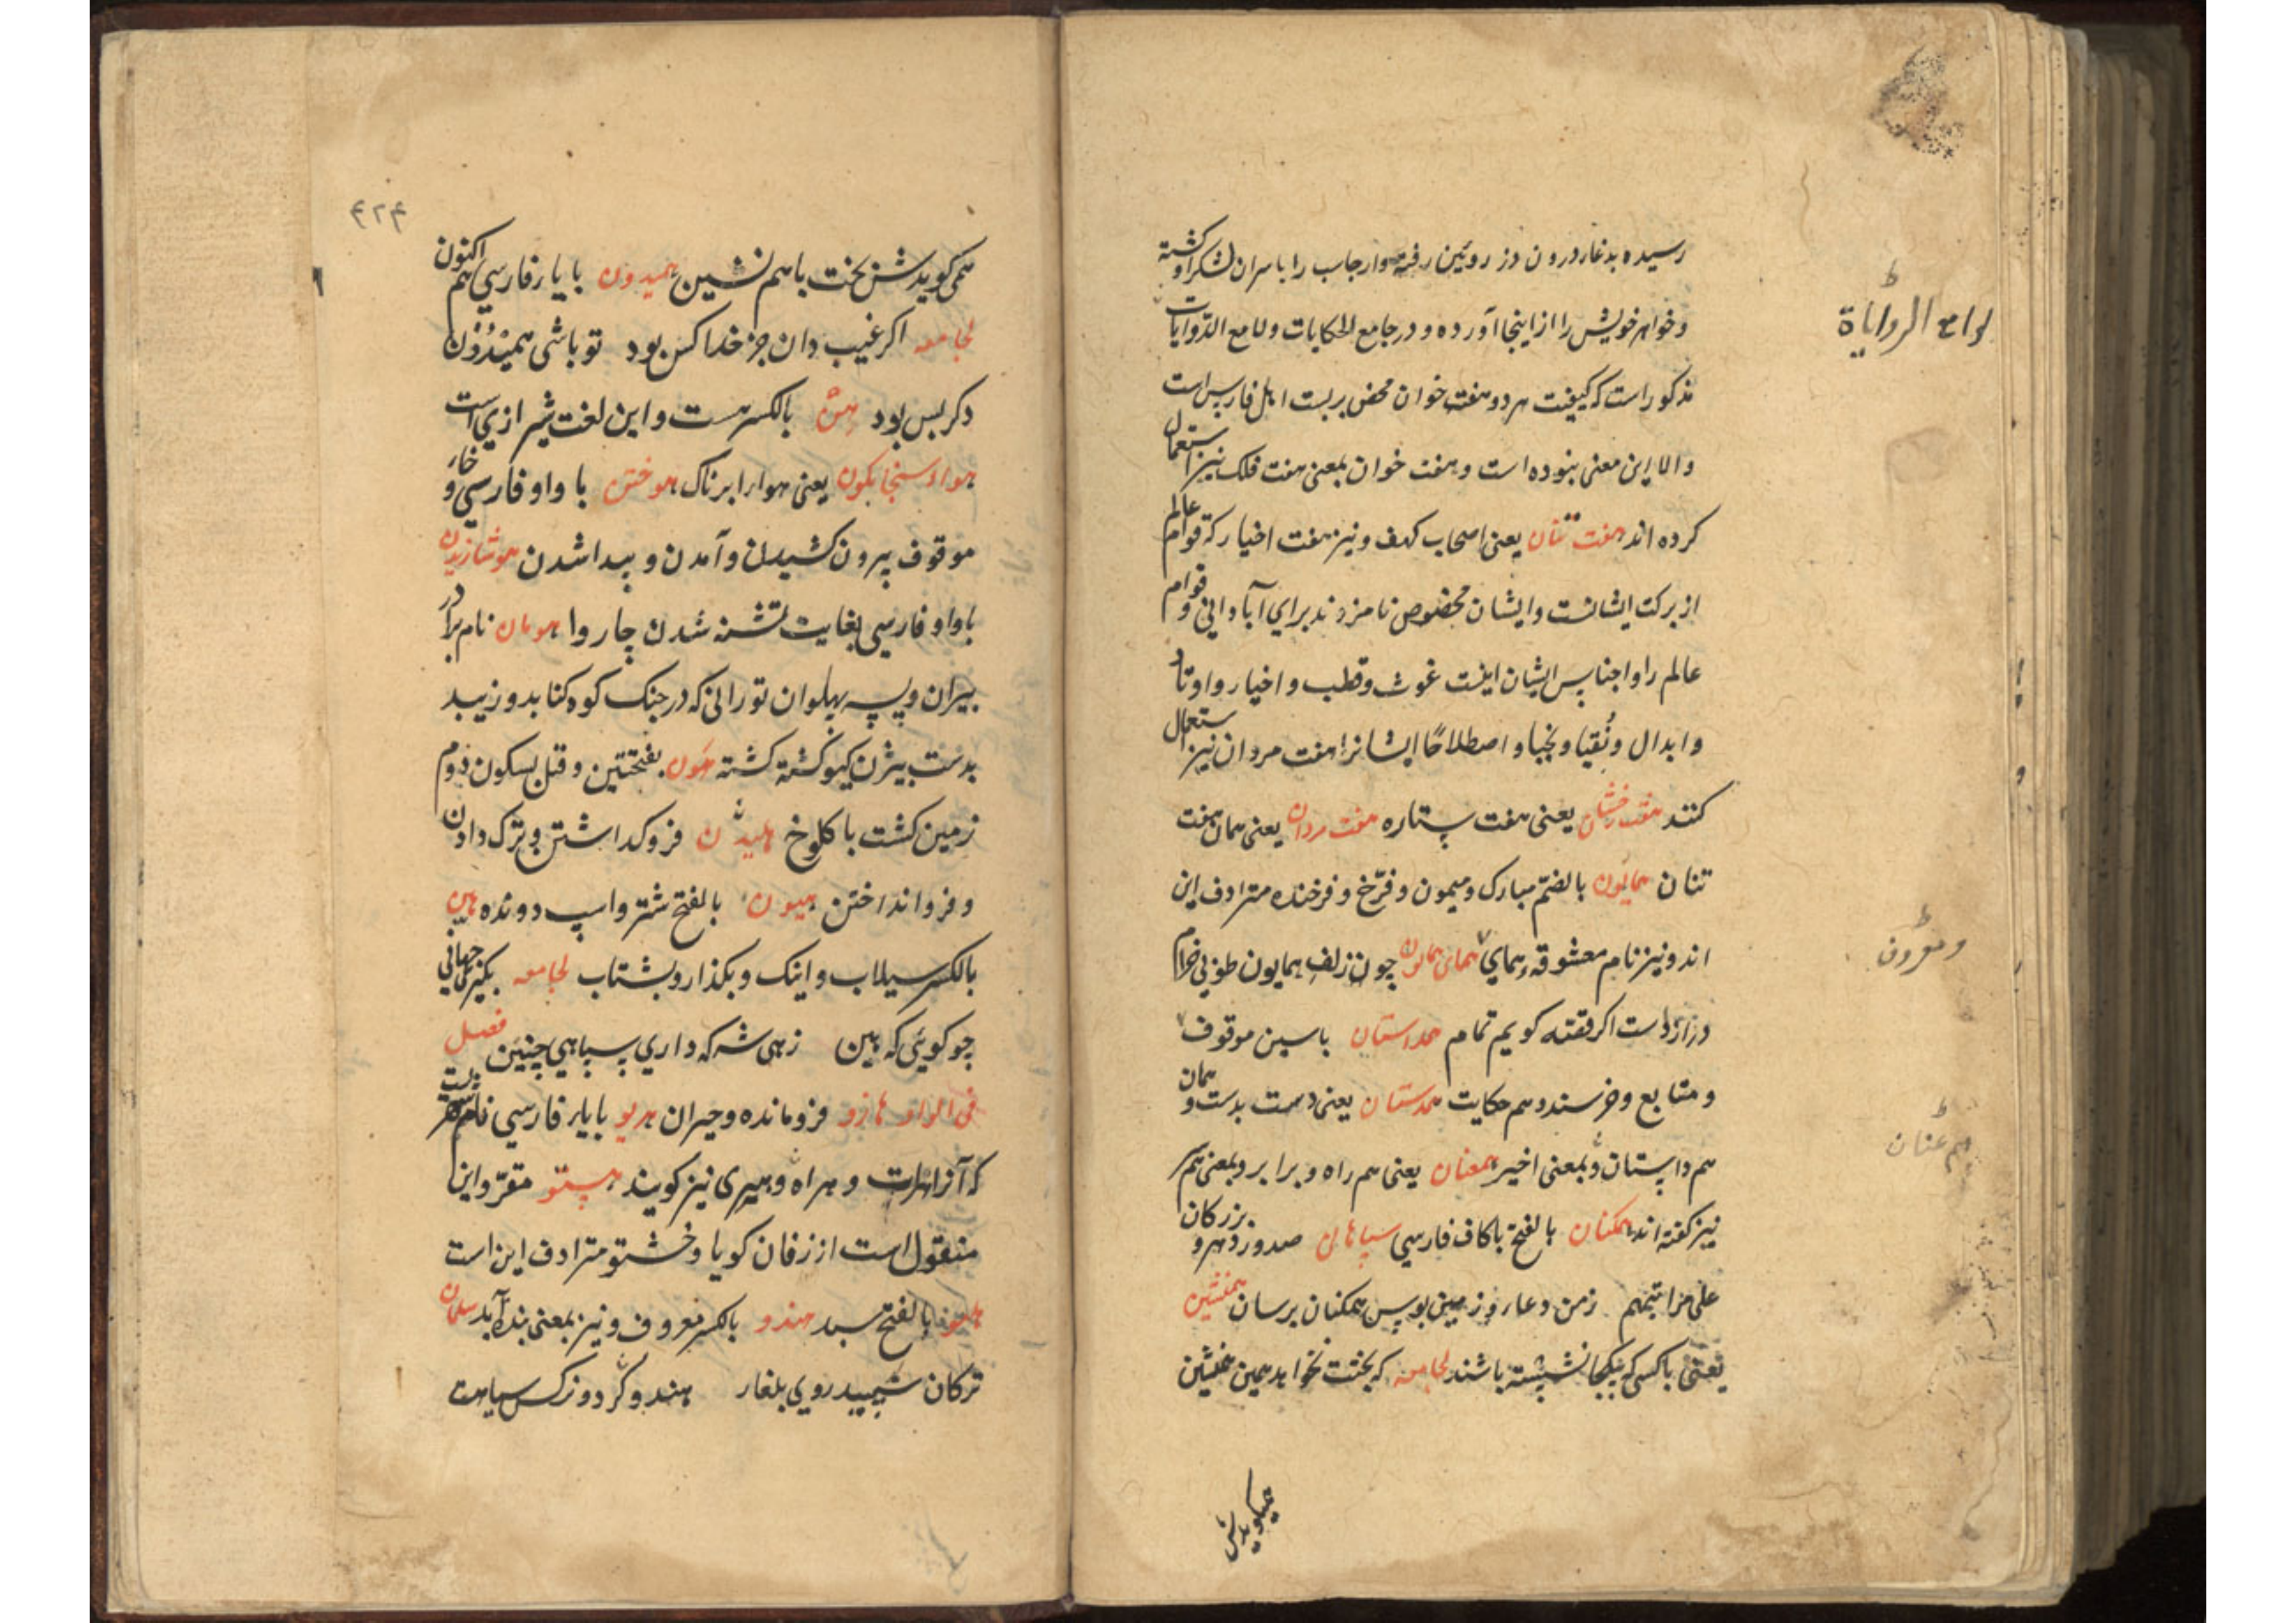 رسیده بدغار درون دز روئین رفته وارجاسب را باسران لشکر او کشته
وخواهر خویش را از اینجا آورده و در جامع الحکایات ولامع الروایات
مذکور است که کیفیت هر دو هفت خوان محض بربست اهل فارس است
والا این معنی بنوده است وهفت خوان بمعنی هفت فلک نیز استعمال
کرده اند هفت تنان یعنی اصحاب کهف ونیز هفت اخیار که قوام عالم
از برکت ایشانست وایشان مخصوص نامزدند برای آبادانی وقوام
عالم را واجناس ایشان اینست غوث وقطب واخیار واوتاد
وابدال ونقبا ونجبا واصطلاحا ایشانرا هفت مردان نیز استعمال
کنند هفت رخشان یعنی هفت ستاره هفت مردان یعنی همان هفت
تنان همایون بالضم مبارک ومیمون وفرخ وفرخنده مترادف این
اند ونیز نام معشوقه همای همای همایون چون زلف همایون طوبی خرام
درازاست اگر قصه کویم تمام همداستان باسین موقوف
ومتابع وخرسند وهم حکایت همدستان یعنی دست بدست وهمان
هم داستان وبمعنی اخیر همعنان یعنی هم راه وبرابر وبمعنی همسر
نیز کفته اند همکنان بالفتح باکاف فارسی سپاهان صدور وبزرکان
زمن دعا و زمین بوس همکنان برسان همنشین
یعنی باکسی که یکجا نشسته باشند لجامعه که بختت نخواهد همین همنشین
همیکویدش
لوامع الروایاة
ومعرون
هم عنان
۴۲۴
همی کویدش بخت باهم نشین همیدون بایار فارسی هم اکنون
لجامعه اکر غیب دان جز خدا کس بود تو باشی همیدون
دکر بس بود هش بالکسر هست واین لغت شیرازی است
هوا سنجابکون یعنی هوا را ابرناک هوختن باواو فارسی وخاء
موقوف بیرون کشیدن وآمدن وپیدا شدن هوشازیدن
باواو فارسی بغایت تشنه شدن چاروا هومان نام برادر
پیران ویسه پهلوان تورانی که در جنک کوه کنابد وزیبد
بدست بیژن کیو کشته کشته هون بفتحتین وقیل بسکون دوم
زمین کشت با کلوخ هلیدن فروکذاشتن وترک دادن
وفروانداختن هیون بالفتح شتر واسپ دونده هین
بالکسر سیلاب واینک وبکذار وبشتاب لجامعه بکیری جهانی
چو کوئی که هین زهی شه که داری سپاهی چنین فصل
فی الواو هازو فرومانده وحیران هریو بایاء فارسی نام شهریست
که آنرا هرات وهراه وهری نیز کویند هستو مقر واین
منقول است از زفان کویا وخستو مترادف این است
بالفتح سبد هندو بالکسر معروف ونیز بمعنی بنده آید سلمان
ترکان سپید روی بلغار هندوکر دو نرکس سیاهت